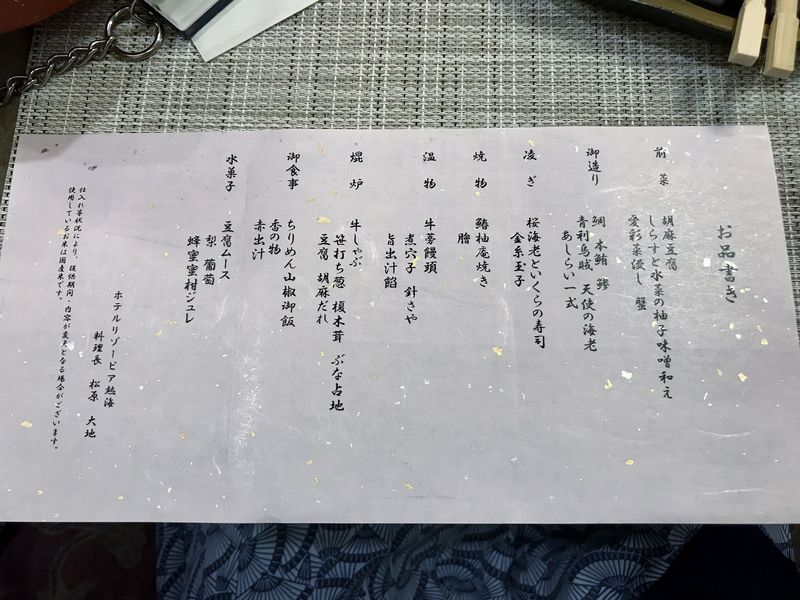 お品書き
前菜
胡麻豆腐
しらすと水菜の柚子味噌和え
愛彩菜浸し 蟹
御造り
鯛 本鮪 鰺
青利烏賊 天使の海老
あしらい一式
凌ぎ
桜海老といくらの寿司
金糸玉子
焼物
鰆柚庵焼き
膾
温物
牛蒡饅頭
煮穴子 針さや
旨出汁餡
焜炉
牛しゃぶ
笹打ち葱 榎木茸 ぶな占地
豆腐 胡麻だれ
御食事
ちりめん山椒御飯
香の物
赤出汁
水菓子
豆腐ムース
梨 葡萄
蜂蜜蜜柑ジュレ
ホテルリゾーピア熱海
料理長 松原 大地
仕入れ等状況により、提供期間、内容が変更となる場合がございます。
使用しているお米は国産米です。